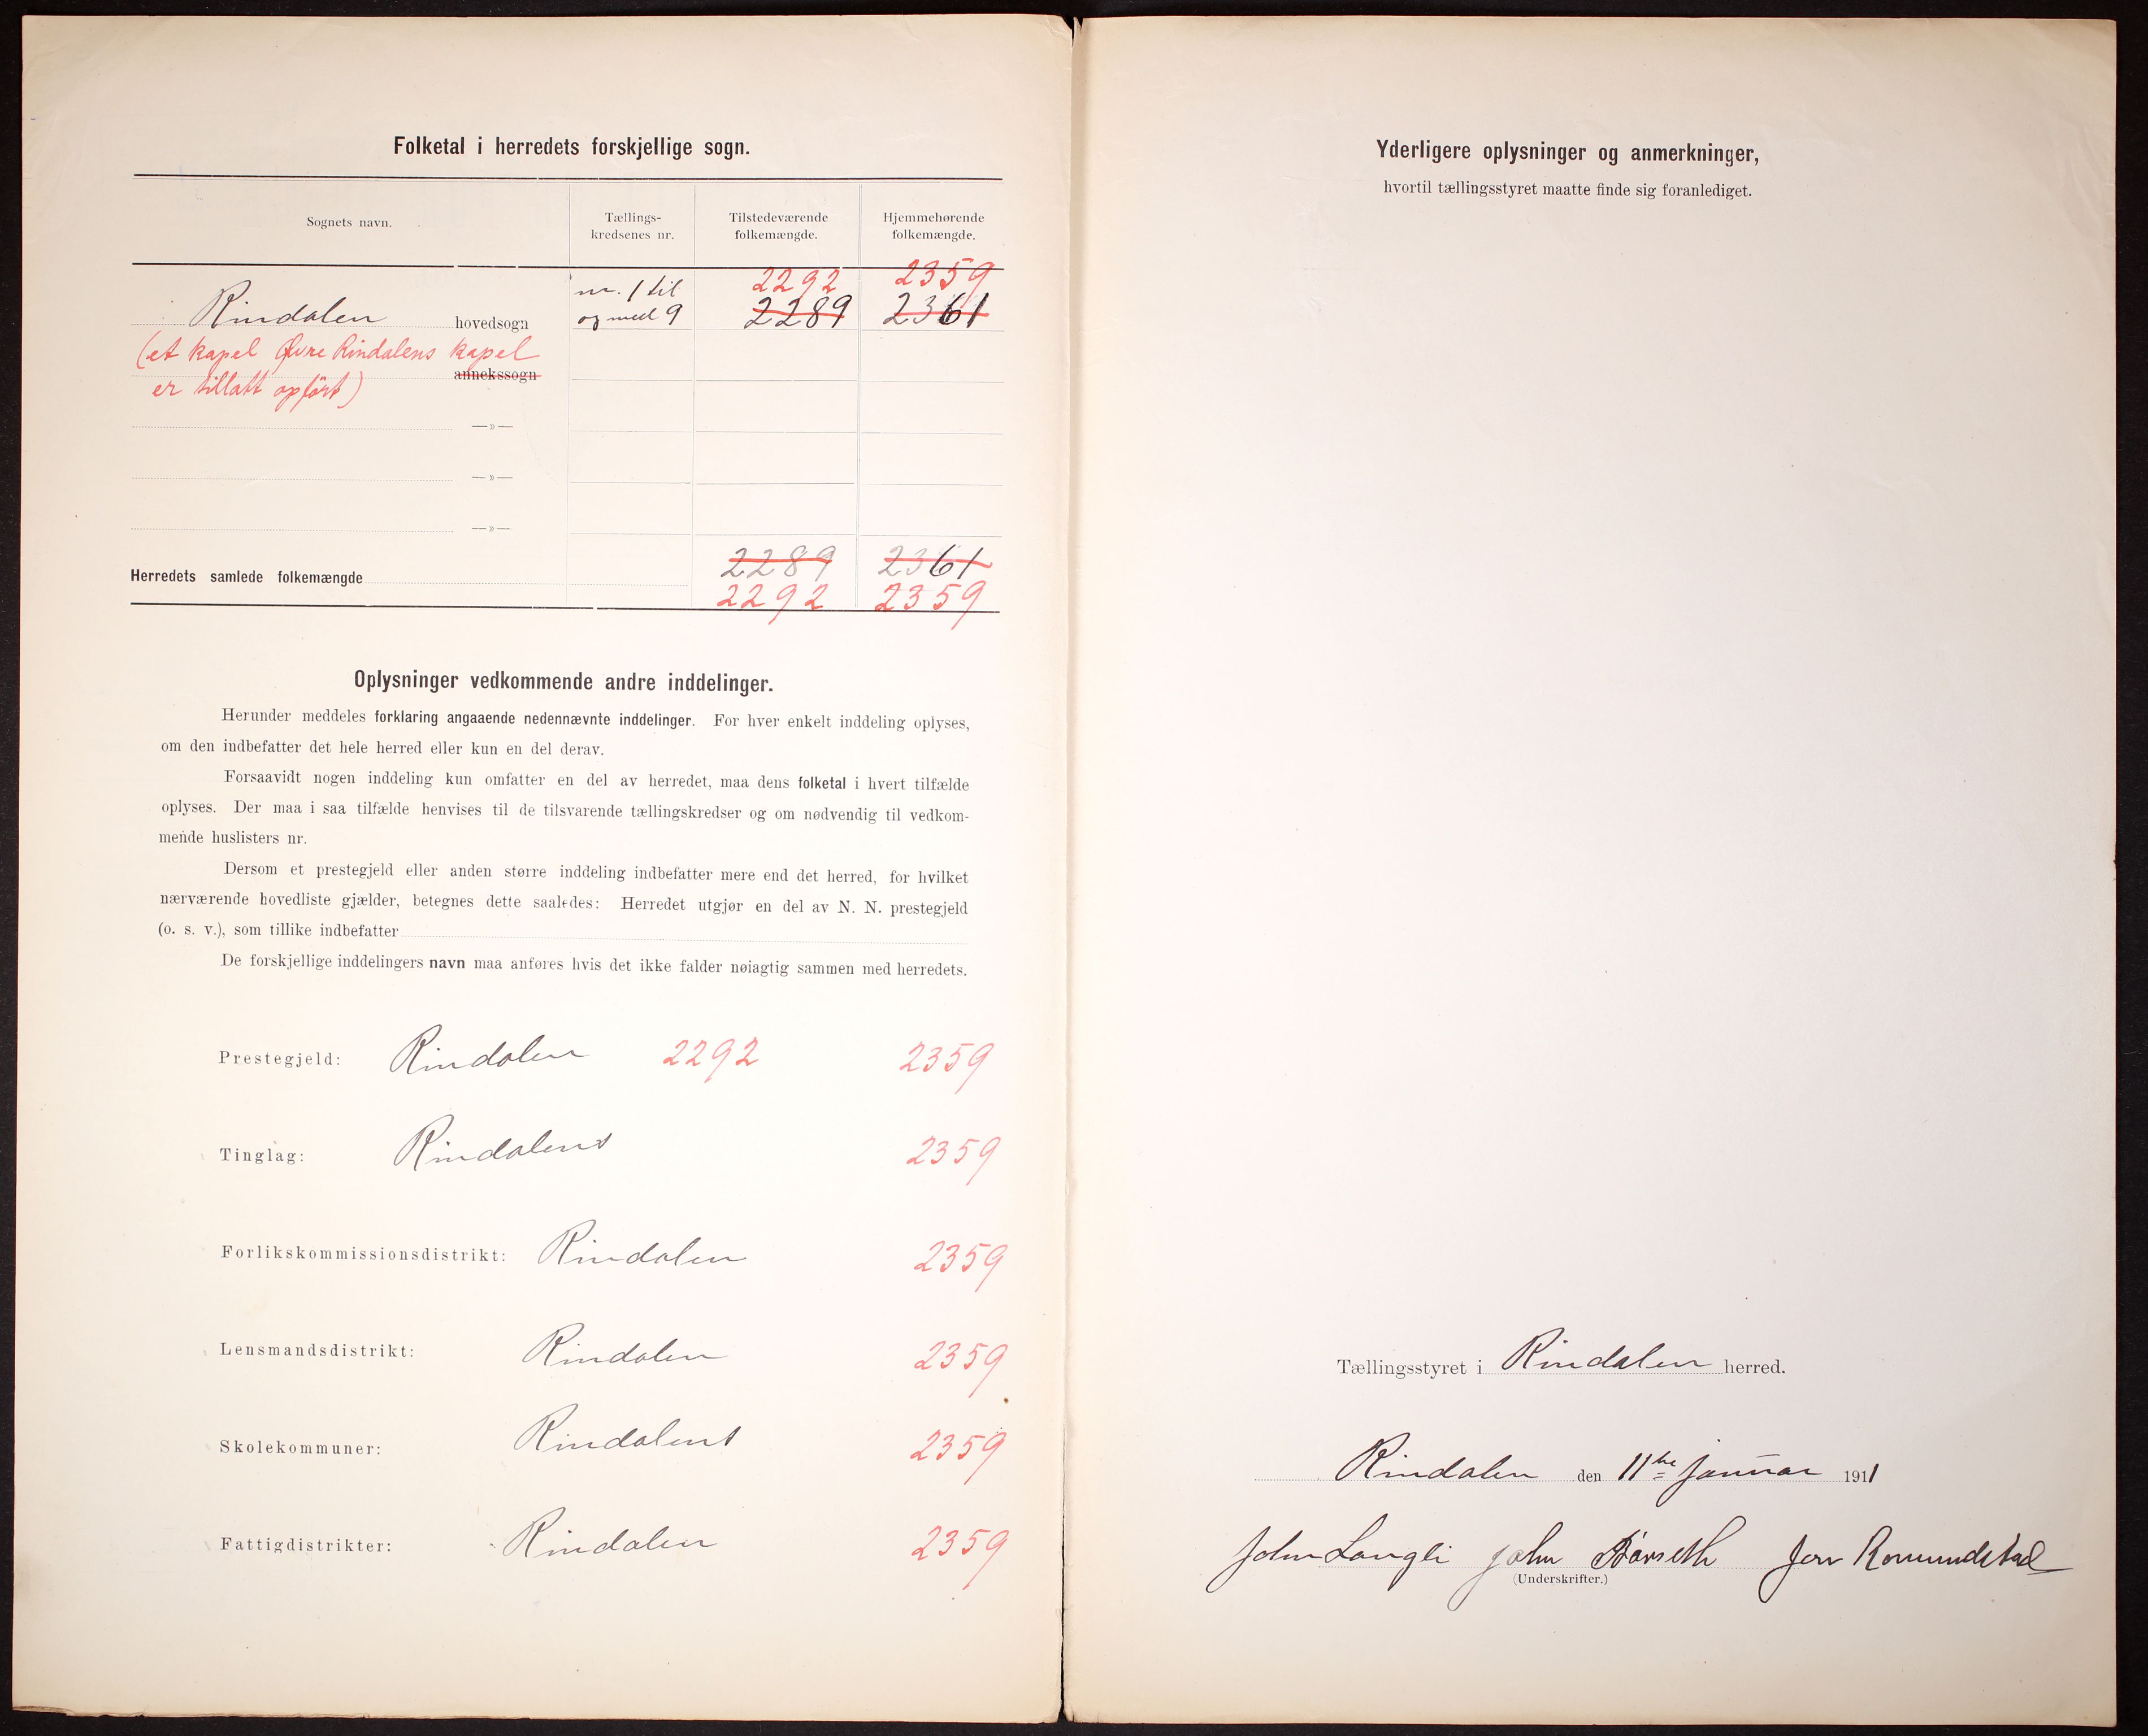 Folketal i herredets forskjellige sogn.
Sognets navn.
Tællings-
kredsenes nr.
Tilstedeværende
folkemængde.
Hjemmehørende
folkemængde.
nr. 1 til 2292 2359
Rindalen hovedsogn og med 9 2289 2361
(et kapel Øvre Rindalens kapel
annekssogn
er tillatt opført)
—»—
—»—
—»—
2289 2361
Herredets samlede folkemængde
2292 2359
Oplysninger vedkommende andre inddelinger.
Herunder meddeles forklaring angaaende nedennævnte inddelinger. For hver enkelt inddeling oplyses,
om den indbefatter det hele herred eller kun en del derav.
Forsaavidt nogen inddeling kun omfatter en del av herredet, maa dens folketal i hvert tilfælde
oplyses. Der maa i saa tilfælde henvises til de tilsvarende tællingskredser og om nødvendig til vedkom-
mende huslisters nr.
Dersom et prestegjeld eller anden større inddeling indbefatter mere end det herred, for hvilket
nærværende hovedliste gjælder, betegnes dette saaledes: Herredet utgjør en del av N. N. prestegjeld
(o. s. v.), som tillike indbefatter
De forskjellige inddelingers navn maa anføres hvis det ikke falder nøiagtig sammen med herredets.
Prestegjeld: Rindalen 2292 2359
Tinglag: Rindalens 2359
Forlikskommissionsdistrikt: Rindalen 2359
Lensmandsdistrikt: Rindalen 2359
Skolekommuner: Rindalens 2359
Fattigdistrikter: Rindalen 2359
Yderligere oplysninger og anmerkninger,
hvortil tællingsstyret maatte finde sig foranlediget.
Tællingsstyret i Rindalen herred.
Rindalen den 11te januar 1911
John Langli John Bårseth Jon Romundstad
(Underskrifter.)